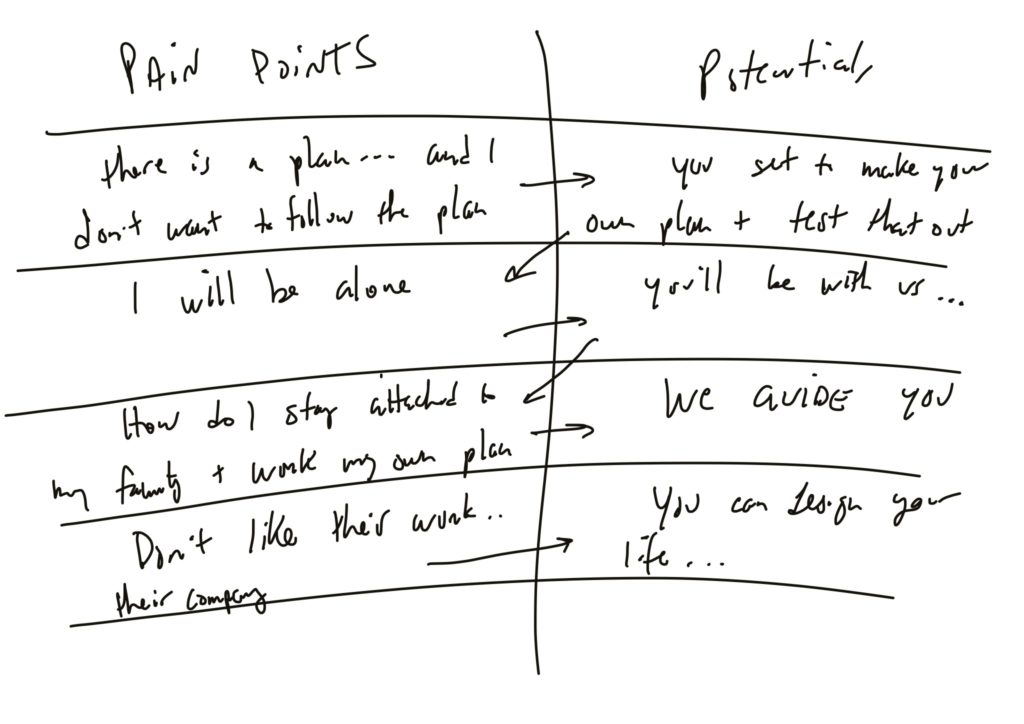 PAiN POiNTS
Potentials
there is a plan... and I
don't want to follow the plan
you get to make your
own plan + test that out
I will be alone
you'll be with us...
How do I stay attached to
my family + work my own plan
WE GUIDE YOU
Don't like their work..
their company
You can design your
life...